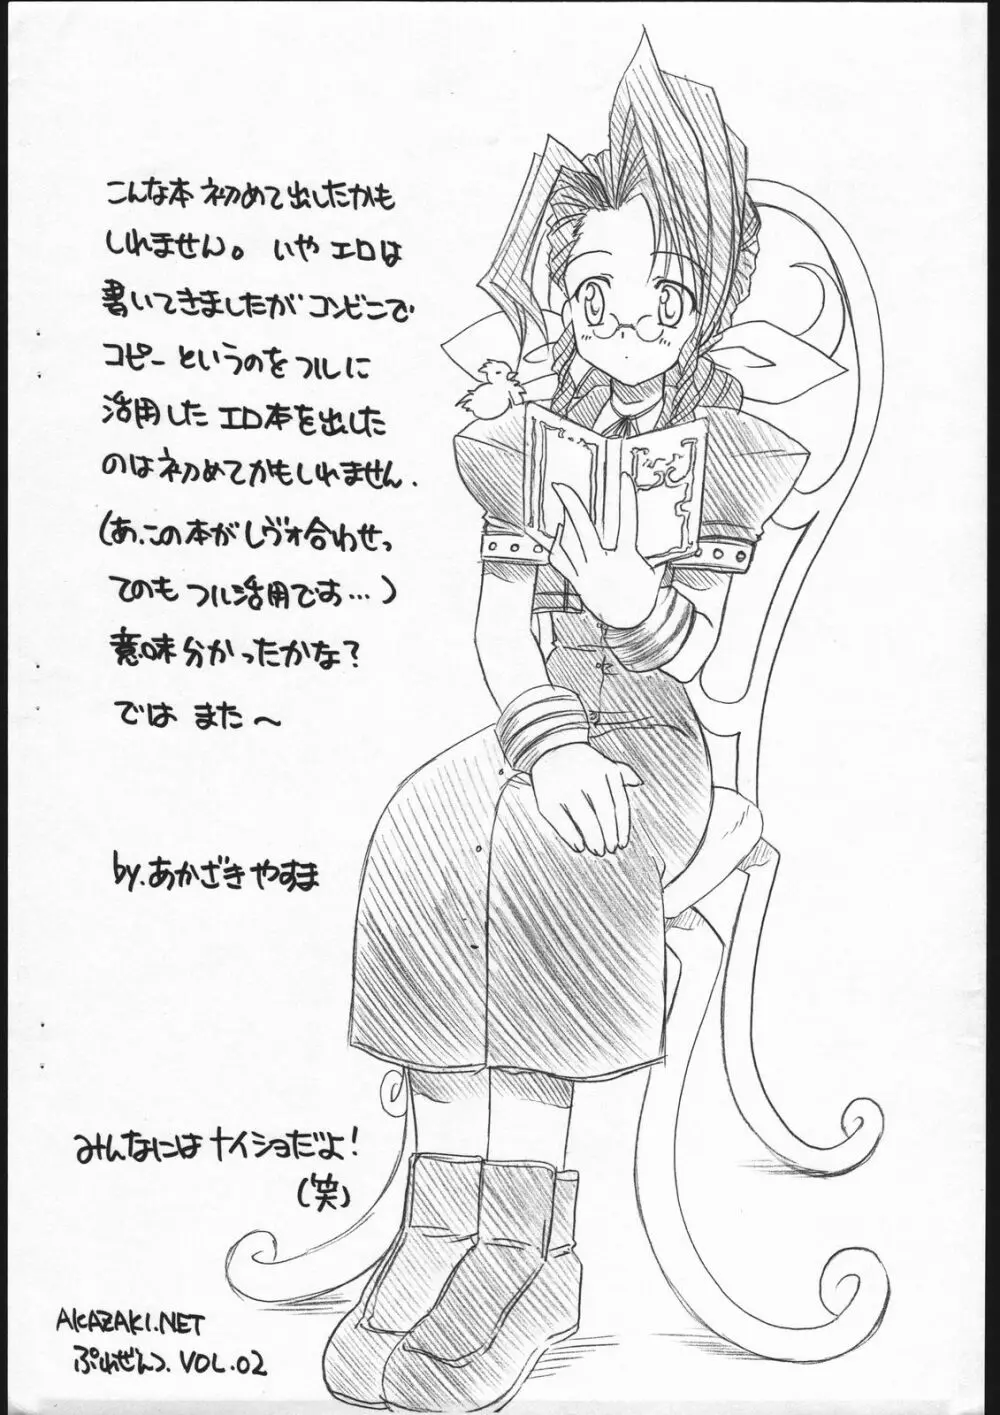 こんな本 初めて出したかも
しれません。いや エロは
書いてきましたが コンビニで
コピー というのを フルに
活用した エロ本を出した
のは 初めてかもしれません.
(あ、この本がレヴォ合わせっ
てのも フル活用です…)
意味分かったかな?
では また〜
by.あかざき やすま
みんなには ナイショだよ!
(笑)
AKAZAKI.NET
ぷれぜんつ. VOL.02